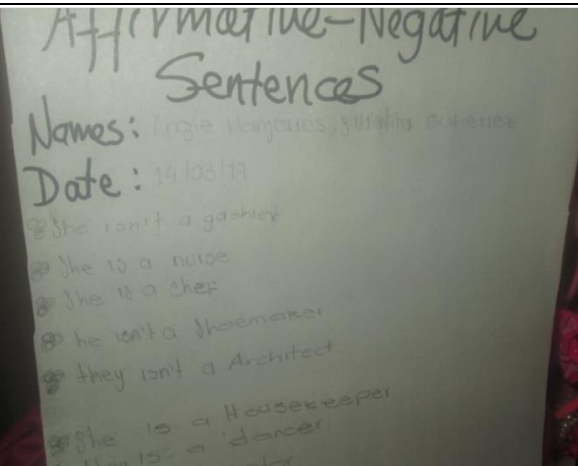 Affirmative-Negative
Sentences
Names: Angie Manjarres,
Date: 14/03/17
She isn't a gashier
She is a nurse
She is a chef
he isn't a Shoemaker
they isn't a Architect
She is a Housekeeper
is a dancer